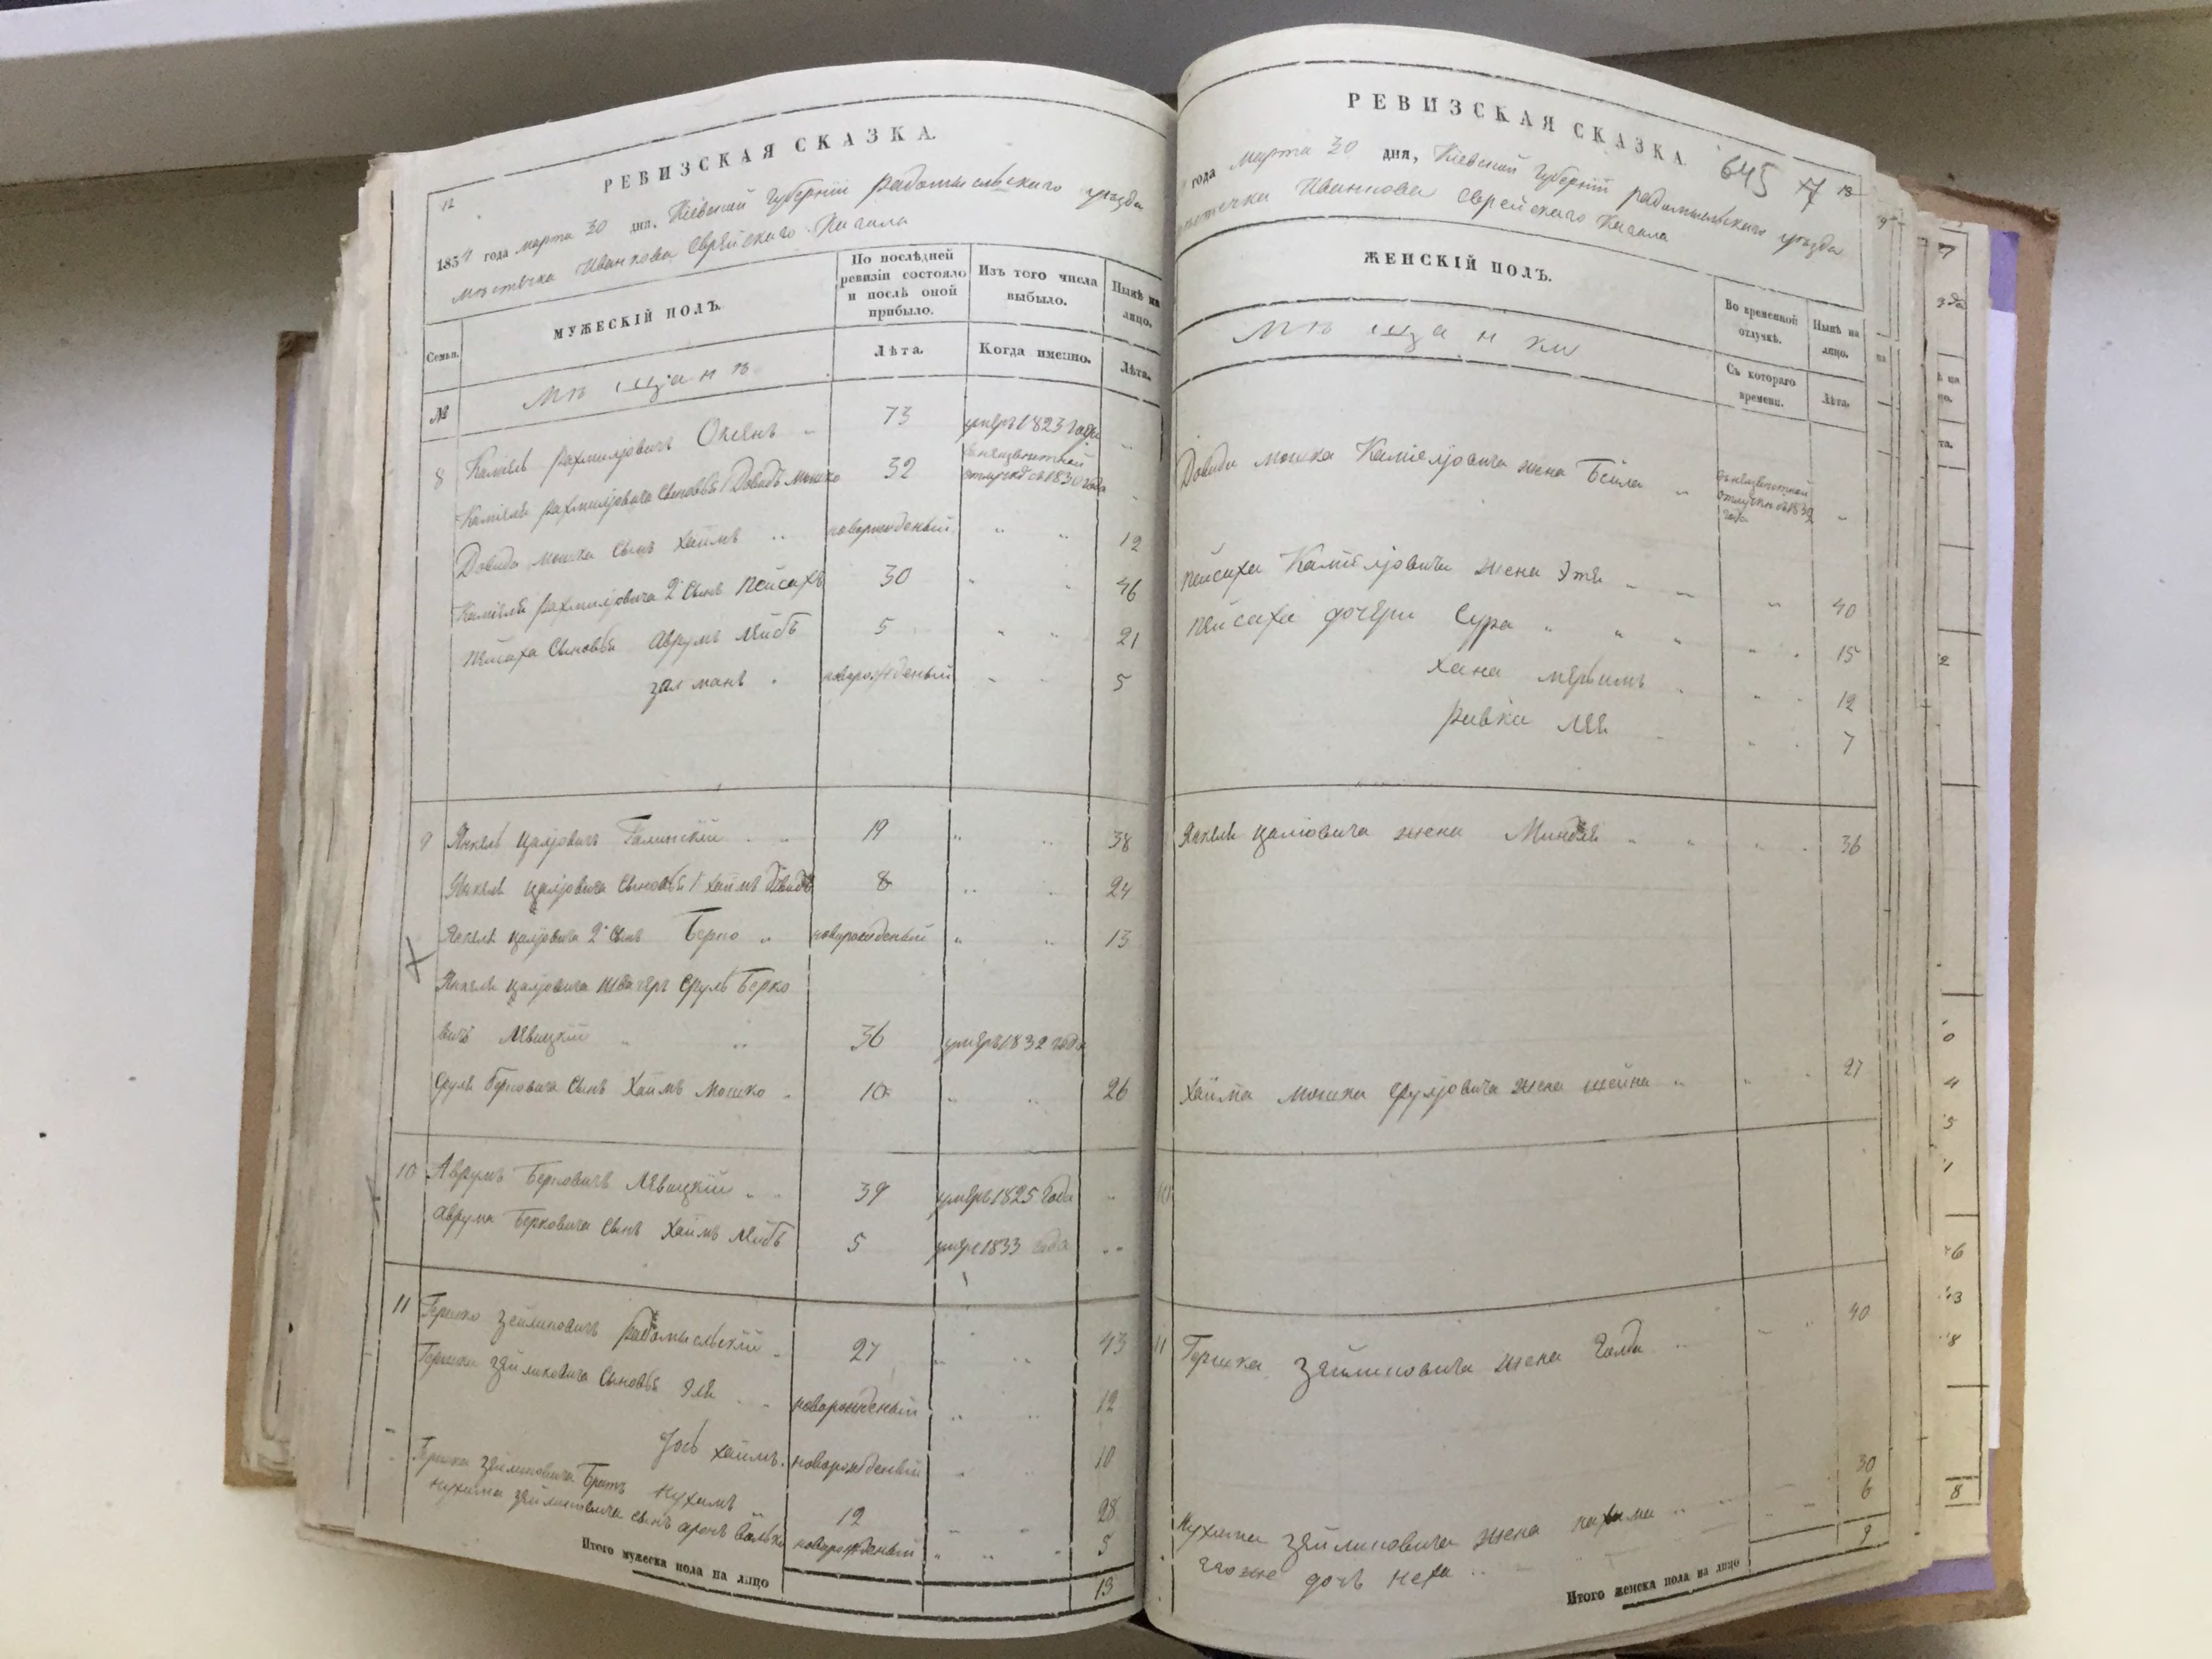 12
РЕВИЗСКАЯ СКАЗКА.
1834 года марта 30 дня, Кіевской Губерніи радомысльскаго уѣзда
мѣстечка Иванкова Еврейскаго Кагала
Семьи.
МУЖЕСКІЙ ПОЛЪ.
По послѣдней ревизіи состояло и послѣ оной прибыло.
Изъ того числа выбыло.
Нынѣ на лицо.
№
Мѣщанѣ
Лѣта.
Когда именно.
Лѣта.
8 Каміель рахмиліовичъ 73 умеръ 1823 года
Каміеля рахмиліовича Сыновья 1 Довидъ Мошко 32 въ неизвѣстной отлучкѣ съ 1830 года
Довида мошка Сынъ Хаимъ новорожденый 12
Каміеля рахмиліовича 2й Сынъ Пейсахъ 30 46
Пейсаха Сыновья Аврумъ Лейбъ 5 21
залманъ новорожденый 5
9 Янкель Цаліовичъ Галинскій 19 38
Янкеля Цаліовича Сыновья 1 Хаимъ Довидъ 8 24
Янкеля Цаліовича 2й Сынъ Берко новорожденый 13
Янкеля Цаліовича Швагеръ Сруль Берко
вичъ Левицкій 36 умеръ 1832 года
Сруля Берковича Сынъ Хаимъ Мошко 10 26
10 Аврумъ Берковичъ Левицкій 39 умеръ 1825 года
Аврума Берковича Сынъ Хаимъ Лейбъ 5 умеръ 1833 года
11 Гершко Зейликовичъ радомысльскій 27 43
Гершка Зейликовича Сыновья Эля новорожденый 12
Іось Хаимъ новорожденый 10
Гершка Зейликовича Братъ Нухимъ 12 28
Нухима Зейликовича сынъ аронъ Волько новорожденый 5
Итого мужеска пола на лицо 13
РЕВИЗСКАЯ СКАЗКА.
645 17 13
года марта 30 дня, Кіевской Губерніи радомысльскаго уѣзда
мѣстечка Иванкова Еврейскаго Кагала
ЖЕНСКІЙ ПОЛЪ.
Во временной отлучкѣ.
Нынѣ на лицо.
Мѣщанки
Съ котораго времени.
Лѣта.
Довида мошка Каміеліовича жена Бейла въ неизвѣстной отлучкѣ съ 1832 года
Пейсаха Каміеліовича жена Этя 40
Пейсаха дочери Сура 15
Хана мерьимъ 12
Ривка Лея 7
Янкеля Цаліовича жена Миндля 36
Хаима мошка Сруліовича жена шейна 27
10
11 Гершка Зейликовича жена Голда 40
Нухима Зейликовича жена нахима 30
Егоже дочь Неха 6
Итого женска пола на лицо 9